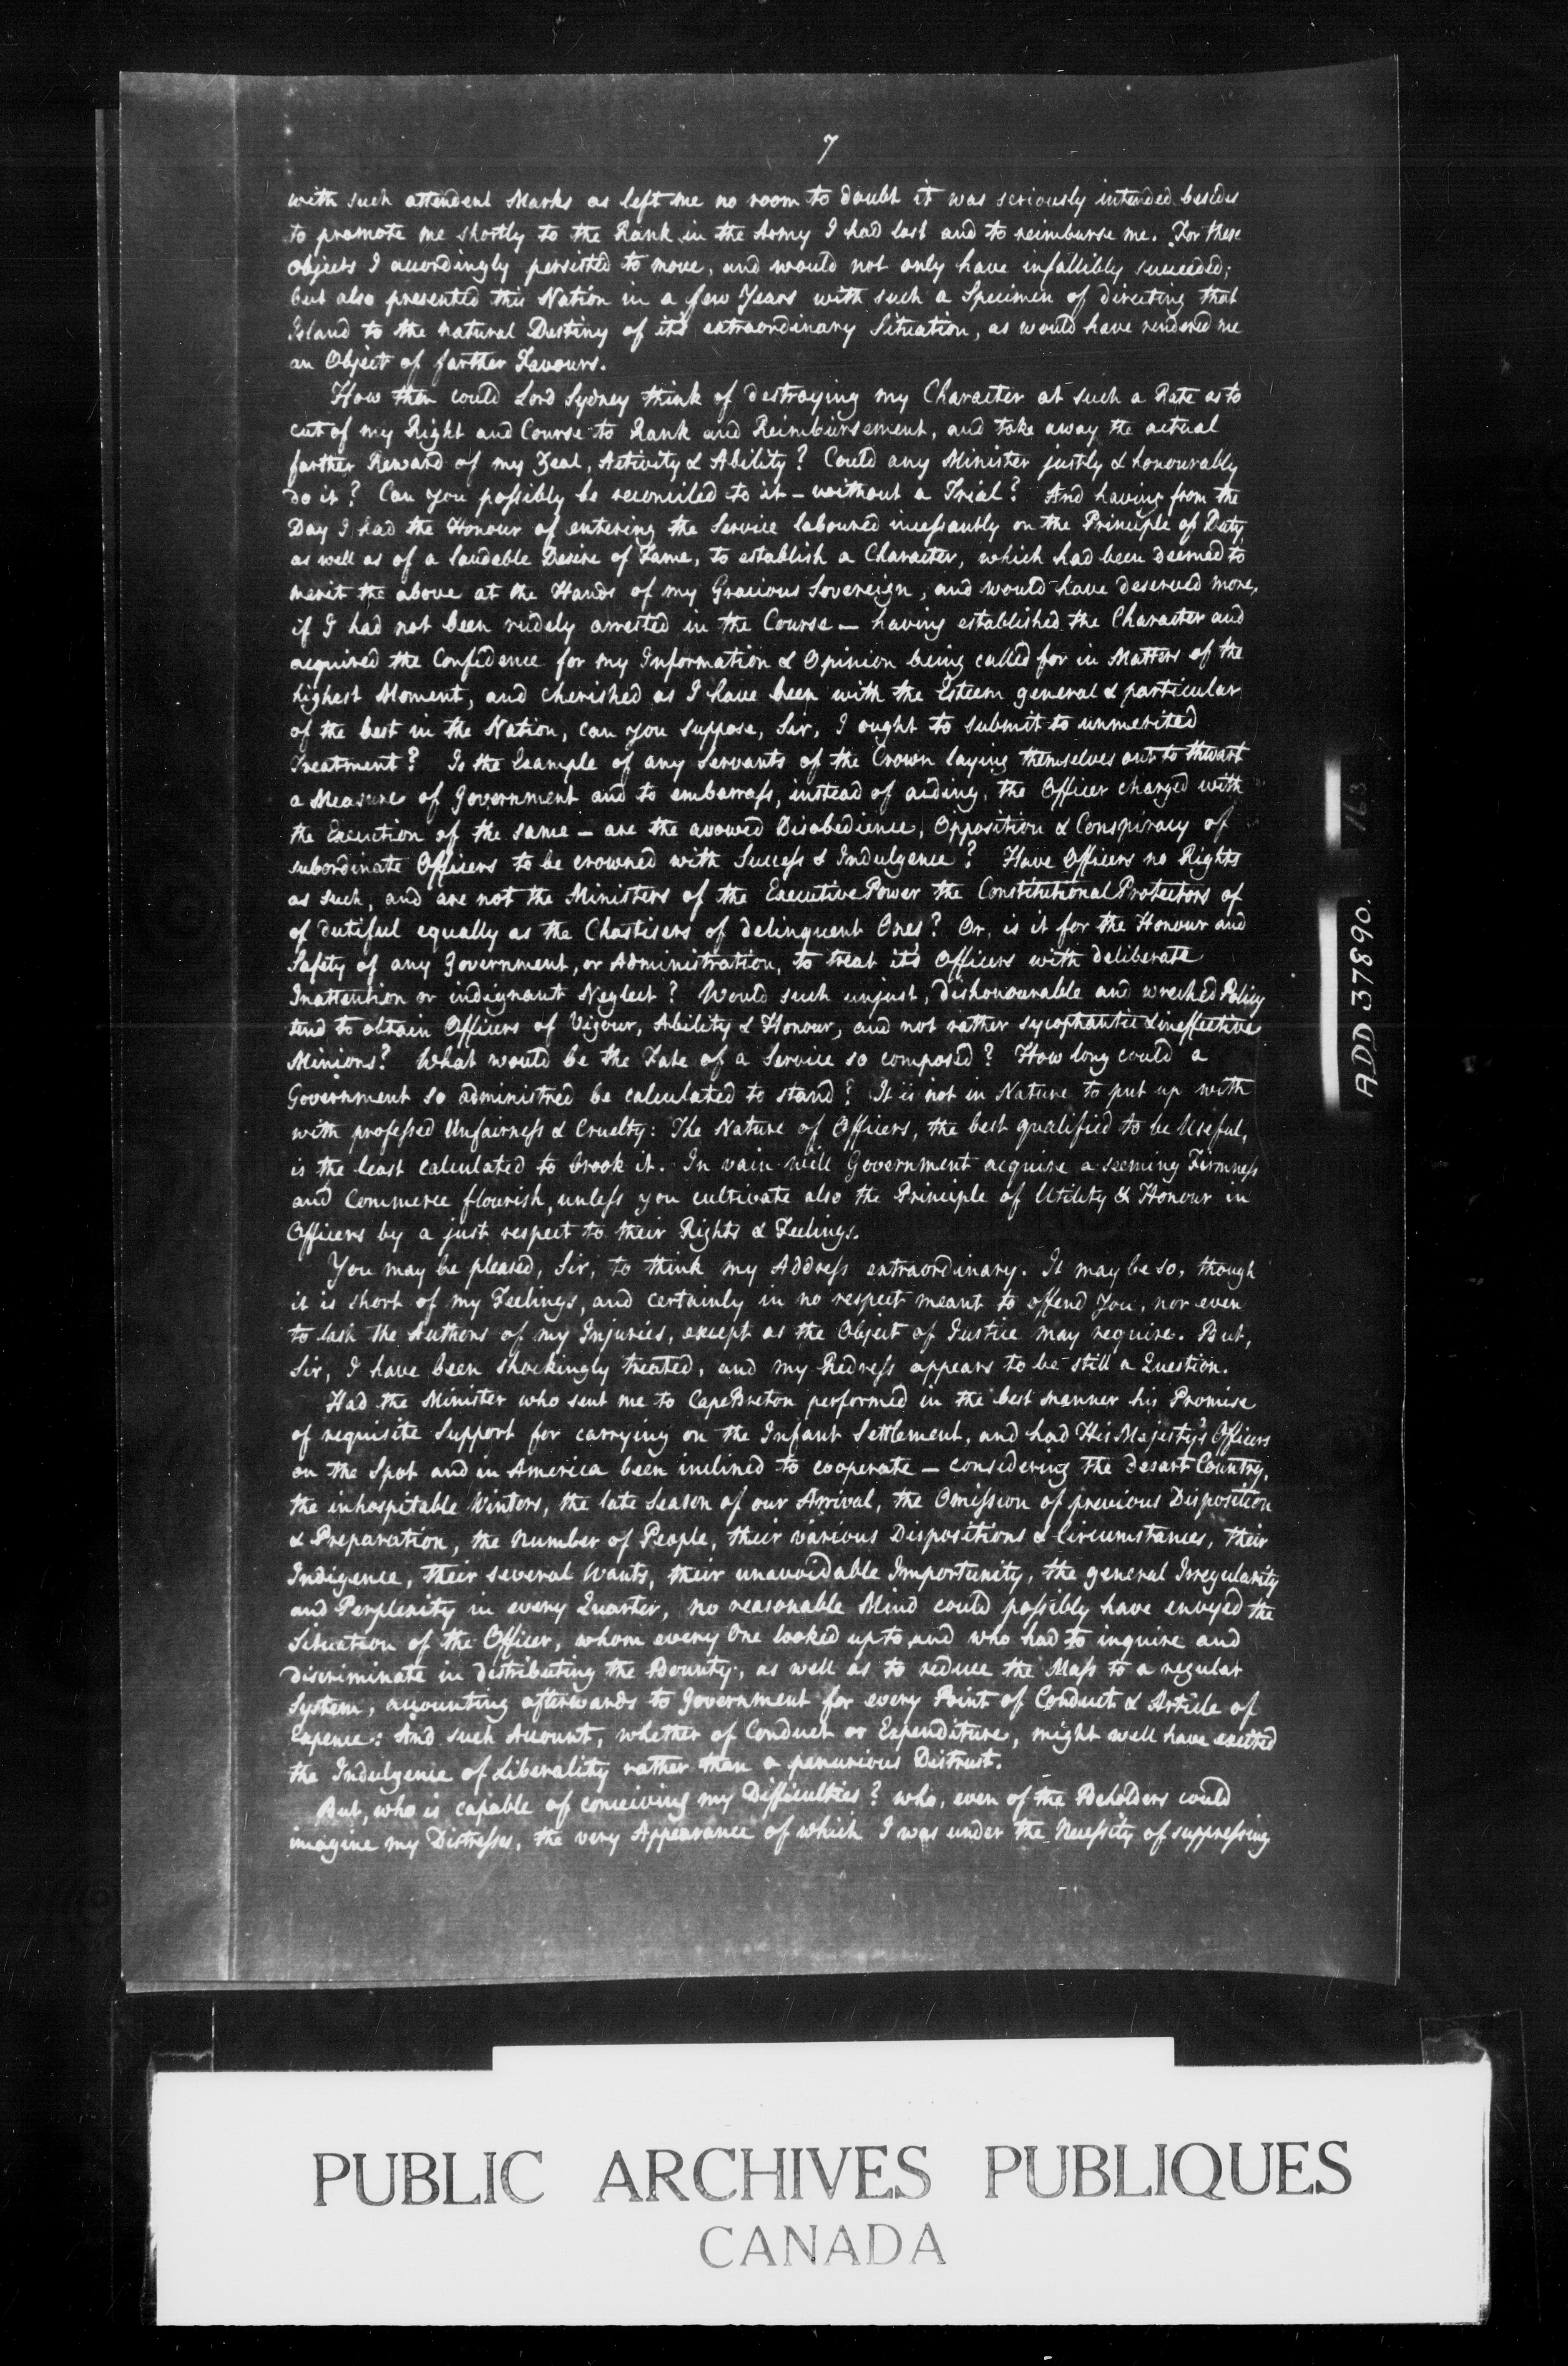 7
with such attendent Marks as left me no room to doubt it was seriously intended besides
to promote me shortly to the Rank in the Army I had lost and to reimburse me. For these
Objects I accordingly persisted to move, and would not only have infallibly succeeded;
but also presented this Nation in a few Years with such a Specimen of directing that
Island to the natural Destiny of it's extraordinary Situation, as would have rendered me
an Object of farther Favours.
How then could Lord Sydney think of destroying my Character at such a Rate as to
cut of my Right and Course to Rank and Reimbursement, and take away the actual
farther Reward of my Zeal, Activity & Ability? Could any Minister justly & honourably
do it? Can you possibly be reconciled to it – without a Trial? And having from the
Day I had the Honour of entering the Service laboured incessantly on the Principle of Duty,
as well as of a laudable Desire of Fame, to establish a Character, which had been deemed to
merit the above at the Hands of my Gracious Sovereign, and would have deserved more,
if I had not been rudely arrested in the Course – having established the Character and
acquired the Confidence for my Information & Opinion being called for in Matters of the
highest Moment, and cherished as I have been with the Esteem general & particular
of the best in the Nation, can you suppose, Sir, I ought to submit to unmerited
Treatment? Is the Example of any Servants of the Crown laying themselves out to thwart
a Measure of Government and to embarrass, instead of aiding, the Officer charged with
the Execution of the same – are the avowed Disobedience, Opposition & Conspiracy of
subordinate Officers to be crowned with Success & Indulgence? Have Officers no Rights
as such, and are not the Ministers of the Executive Power the Constitutional Protectors of
of dutiful equally as the Chastisers of delinquent Ones? Or, is it for the Honour and
Safety of any Government, or Administration, to treat it's Officers with deliberate
Inattention or indignant Neglect? Would such unjust, dishonourable and wreched Policy
tend to obtain Officers of Vigour, Ability & Honour, and not rather sycophantic & ineffective
Minions? What would be the Fate of a Service so composed? How long could a
Government so administred be calculated to stand? It is not in Nature to put up with
with professed Unfairness & Cruelty: The Nature of Officers, the best qualified to be Useful,
is the least calculated to brook it. In vain will Government acquire a seeming Firmness
and Commerce flourish, unless you cultivate also the Principle of Utility & Honour in
Officers by a just respect to their Rights & Feelings.
You may be pleased, Sir, to think my Address extraordinary. It may be so, though
it is short of my Feelings, and certainly in no respect meant to offend You, nor even
to lash the Authors of my Injuries, except as the Object of Justice may require. But,
Sir, I have been shockingly treated, and my Redress appears to be still a Question.
Had the Minister who sent me to Cape Breton performed in the best manner his Promise
of requisite Support for carrying on the Infant Settlement, and had His Majesty's Officers
on the Spot and in America been inclined to cooperate – considering the desart Country,
the inhospitable Winters, the late Season of our Arrival, the Omission of previous Disposition
& Preparation, the Number of People, their various Dispositions & Circumstances, their
Indigence, their several Wants, their unavoidable Importunity, the general Irregularity
and Perplexity in every Quarter, no reasonable Mind could possibly have envyed the
Situation of the Officer, whom every One looked up to, and who had to inquire and
discriminate in distributing the Bounty, as well as to reduce the Mass to a regular
System, accounting afterwards to Government for every Point of Conduct & Article of
Expence: And such Account, whether of Conduct or Expenditure, might well have excited
the Indulgence of Liberality rather than a penurious Distrust.
But, who is capable of conceiving my Difficulties? who, even of the Beholders could
imagine my Distresses, the very Appearance of which I was under the Necessity of suppressing
163
ADD 37890.
PUBLIC ARCHIVES PUBLIQUES
CANADA